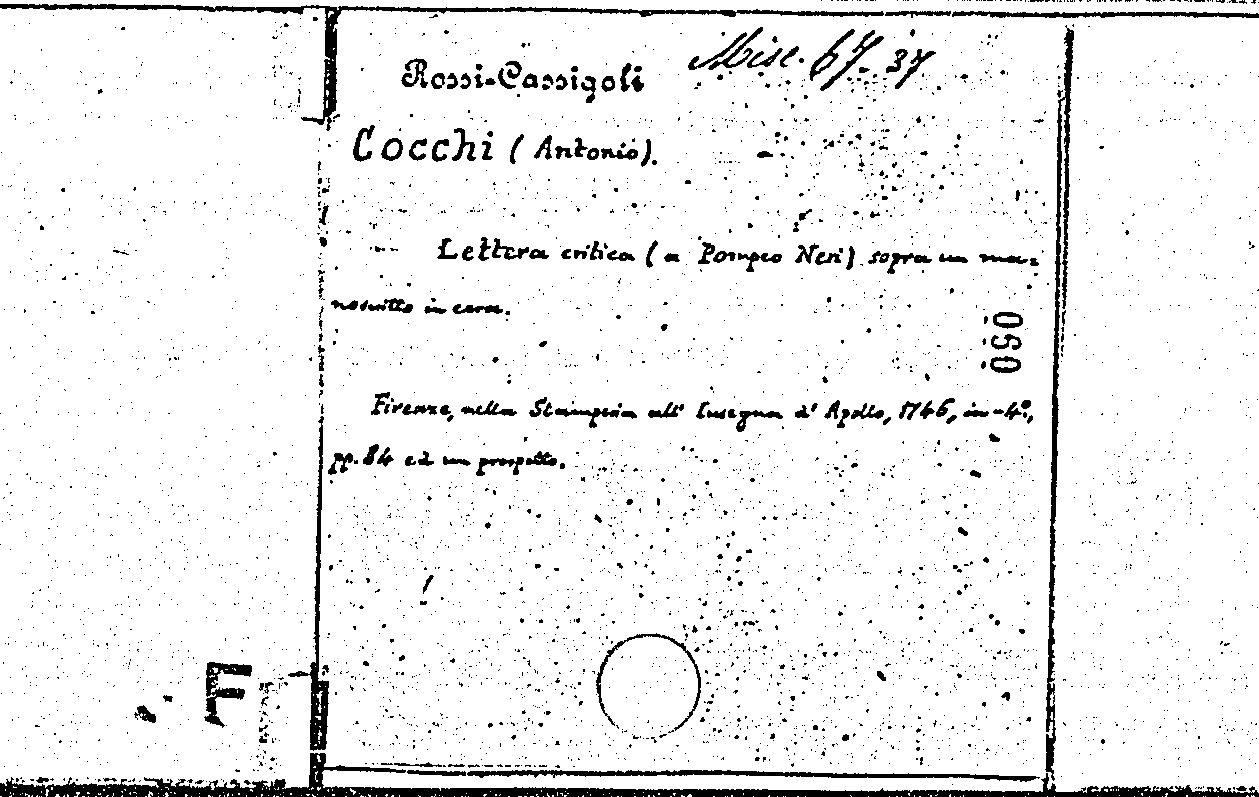 Misc. 67. 37
Rossi-Cassigoli
Cocchi (Antonio).
Lettera critica (a Pompeo Neri) sopra un ma=
noscritto in cera.
060
Firenze, nella Stamperia all' Insegna d' Apollo, 1746, in-4º,
pp. 84 ed un prospetto.
F